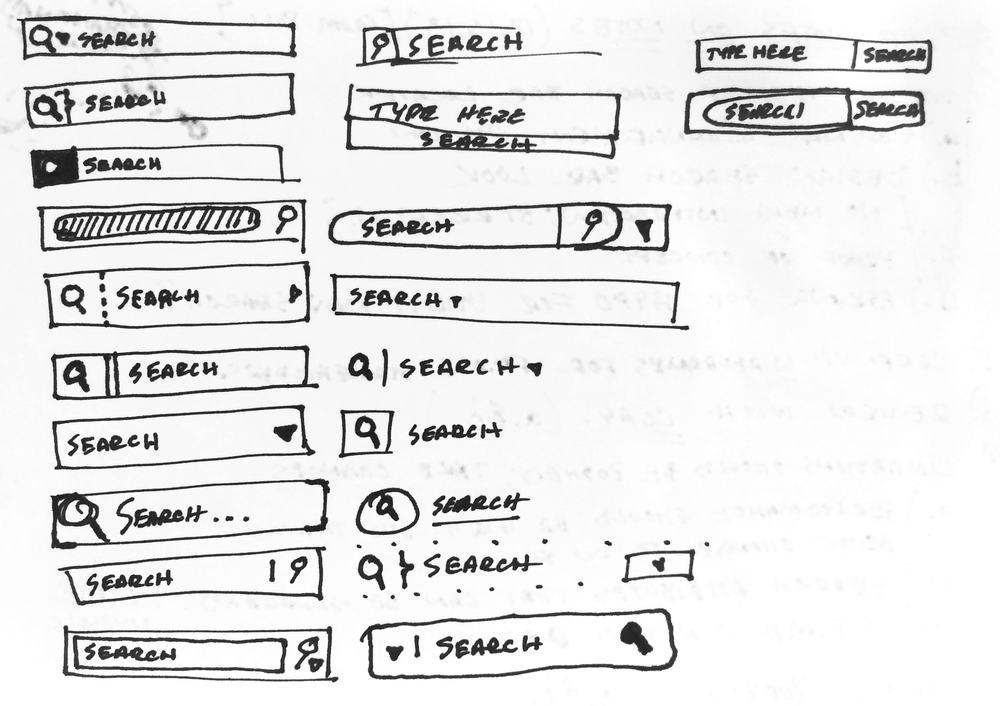 SEARCH
SEARCH
SEARCH
SEARCH
SEARCH
SEARCH
SEARCH...
SEARCH
SEARCH
SEARCH
TYPE HERE
SEARCH
SEARCH
SEARCH
SEARCH
SEARCH
SEARCH
SEARCH
SEARCH
TYPE HERE SEARCH
SEARCH SEARCH